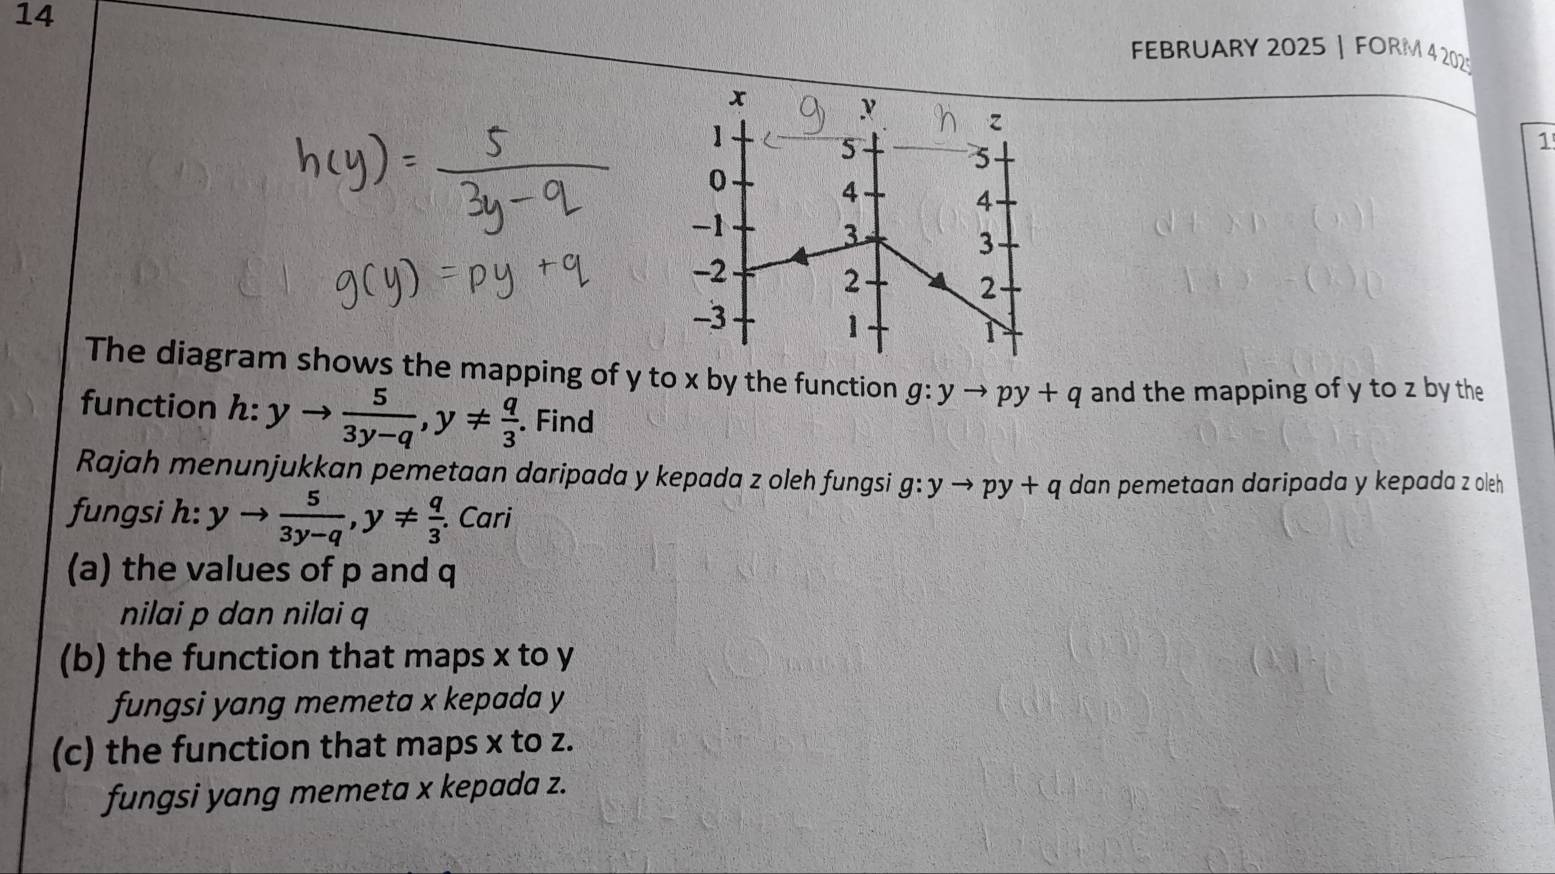 14
FEBRUARY 2025 | FORM 4 2025
h(y) = 5/(3y-q)
g(y) = py + q
g h
x y z
1 5 5
0 4 4
-1 3 3
-2 2 2
-3 1 1
The diagram shows the mapping of y to x by the function g: y → py + q and the mapping of y to z by the
function h: y → 5/(3y-q), y ≠ q/3. Find
Rajah menunjukkan pemetaan daripada y kepada z oleh fungsi g: y → py + q dan pemetaan daripada y kepada z oleh
fungsi h: y → 5/(3y-q), y ≠ q/3. Cari
(a) the values of p and q
nilai p dan nilai q
(b) the function that maps x to y
fungsi yang memeta x kepada y
(c) the function that maps x to z.
fungsi yang memeta x kepada z.